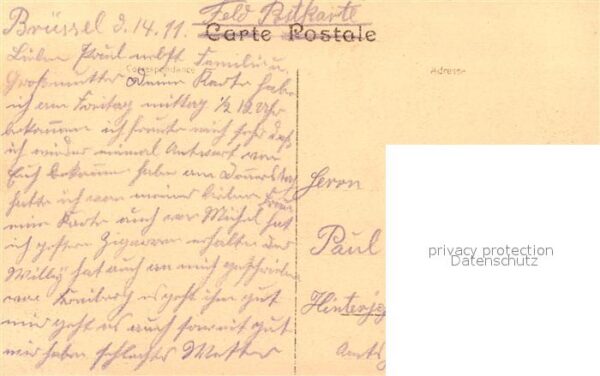 Brüssel d. 14. 11. Feld Postkarte
Carte Postale
Lieber Paul nebst Familie u.
Correspondance
Adresse
Großmutter Deine Karte habe
ich am Freitag mittag ½ 12 Uhr
bekommen ich freute mich sehr daß
ich wieder einmal Antwort von
Euch bekomme habe am Donnerstag
hatte ich von meiner lieben Frau
eine Karte auch von Michel hat
ich gestern Zigarren erhalten der
Willy hat auch an mich geschrieben
von es geht ihm gut
mir geht es auch soweit gut
wir haben schlechts Wetter
Herrn
Paul
privacy protection
Datenschutz